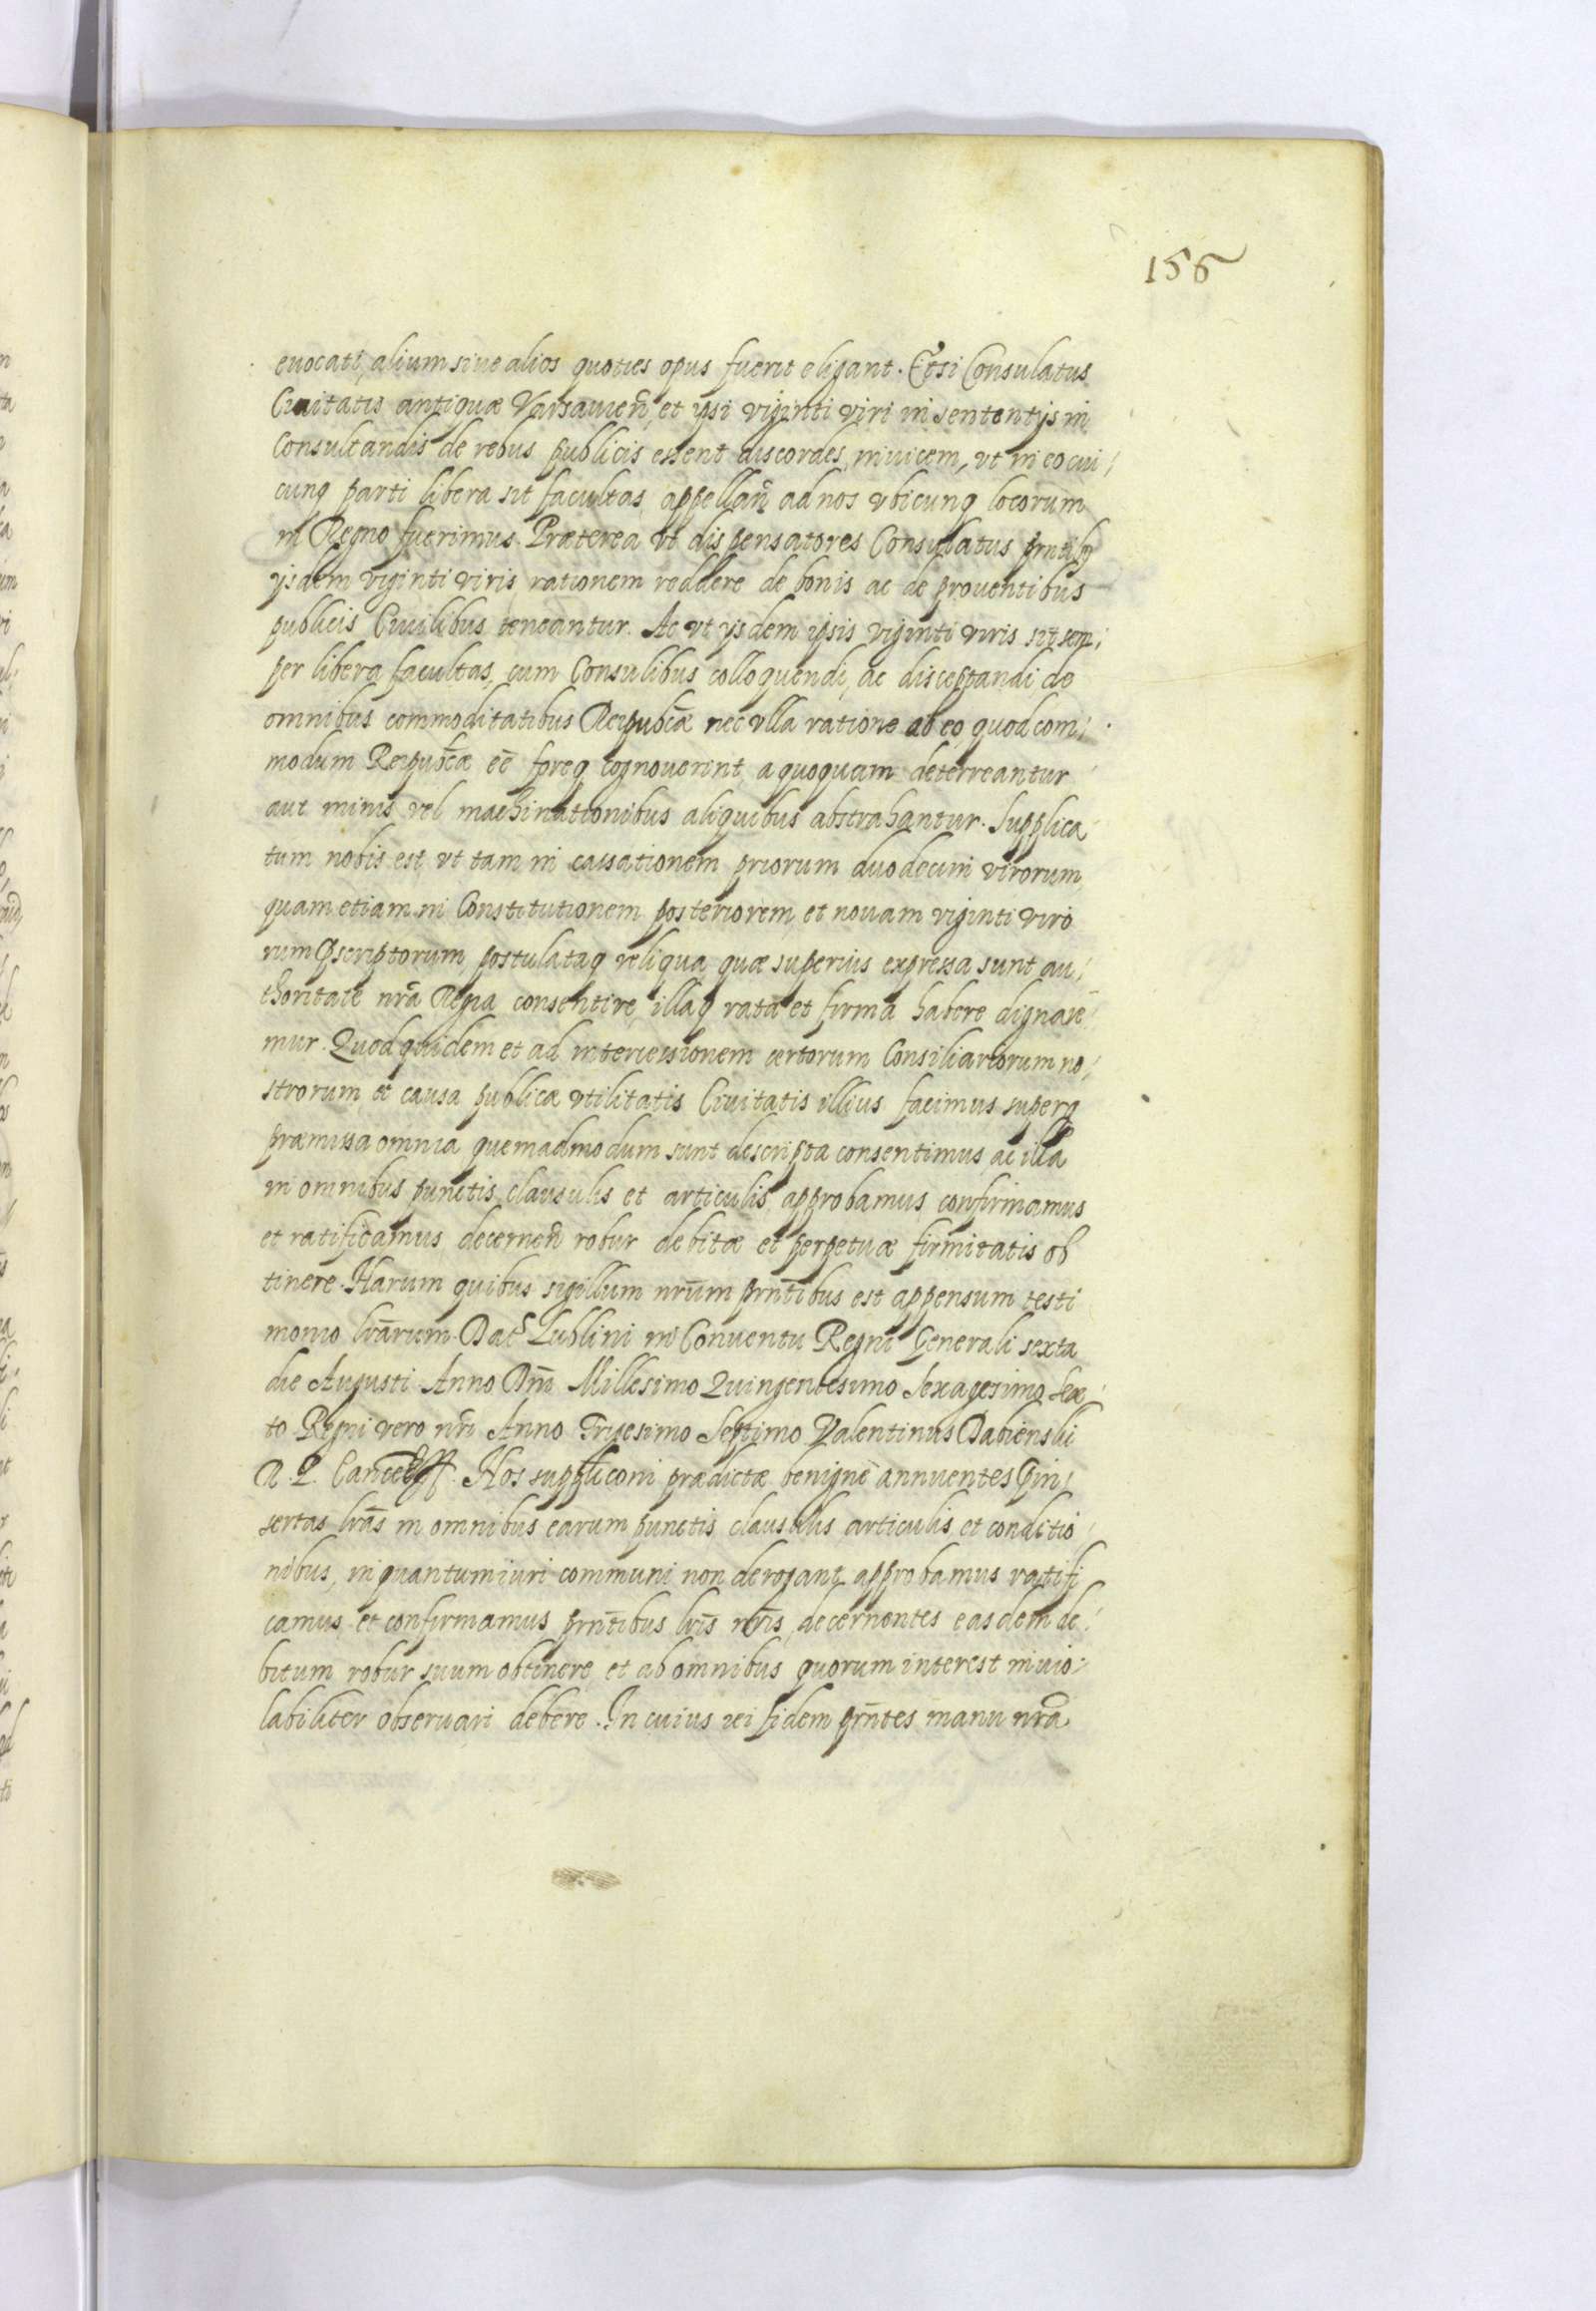 156
euocati, alium siue alios quoties opus fuerit eligant. Et si Consulatus
Ciuitatis antiquæ Varsauien̄, et ipsi viginti viri in sententijs in
Consultandis de rebus publicis essent discordes, inuicem, vt in eo cui,
cunq parti libera sit facultas, appellan̄ ad nos vbicunq locorum
in Regno fuerimus. Præterea vt dispensatores Consulatus prntibq
ijsdem viginti viris rationem reddere de bonis ac de prouentibus
publicis Ciuilibus teneantur. Ac vt ijsdem ipsis viginti viris sit sem,
per libera facultas, cum Consulibus colloquendi, ac disceptandi de
omnibus commoditatibus Reipub̄cæ nec vlla ratione ab eo, quod com,
modum Reipub̄cæ eē foreq cognouerint, a quoquam deterreantur
aut minis vel machinationibus aliquibus abstrahantur. Supplica
tum nobis est, vt tam in cassationem priorum duodecim virorum
quam etiam in Constitutionem posteriorem et nouam viginti viro
rum pscriptorum postulataq reliqua quæ superius expressa sunt au,
thoritate nrā Regia consentire, illaq rata et firma habere dignare
mur. Quod quidem et ad intercessionem certorum Consiliariorum no,
strorum et causa publicæ vtilitatis Ciuitatis illius facimus superq
præmissa omnia quemadmodum sunt descripta consentimus, ac illa
in omnibus punctis, clausulis et articulis, approbamus, confirmamus
et ratificamus, decernen̄ robur debitæ et perpetuæ firmitatis ob
tinere. Harum quibus sigillum nrūm prn̄tibus est appensum testi
monio lrārum. Dat Lublini in Conuentu Regni Generali sexta
die Augusti Anno Dn̄i Millesimo Quingentesimo Sexagesimo Sex
to Regni vero nrī Anno Trigesimo Septimo Valentinus Dabienski
R. P. Nos suppliconi prædictæ benignè annuentes pin,
sertas lrās in omnibus earum punctis clausulis, articulis, et conditio
nibus, inquantum iuri communi non derogant, approbamus ratifi
camus, et confirmamus prn̄tibus lrīs nrīs, decernentes easdem de
bitum robur suum obtinere, et ab omnibus quorum interest inuio,
labiliter obseruari debere. In cuius rei fidem prn̄tes manu nrā